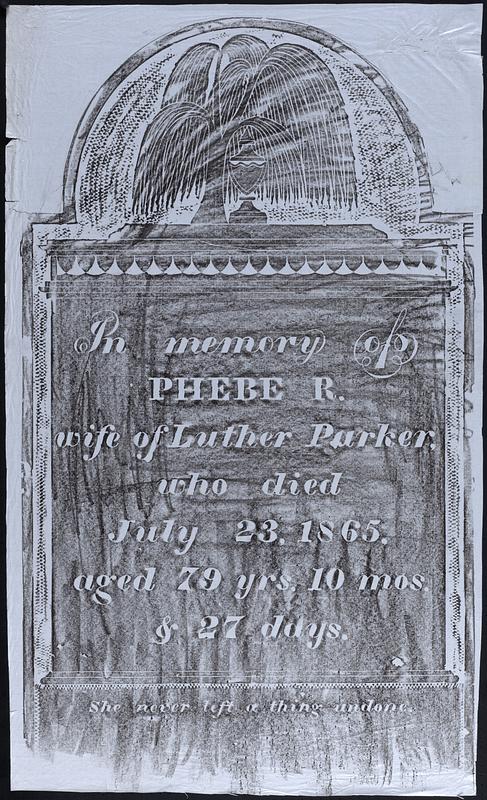 In memory of
PHEBE R.
wife of Luther Parker,
who died
July 23, 1865,
aged 79 yrs. 10 mos.
& 27 days.
She never left a thing undone.